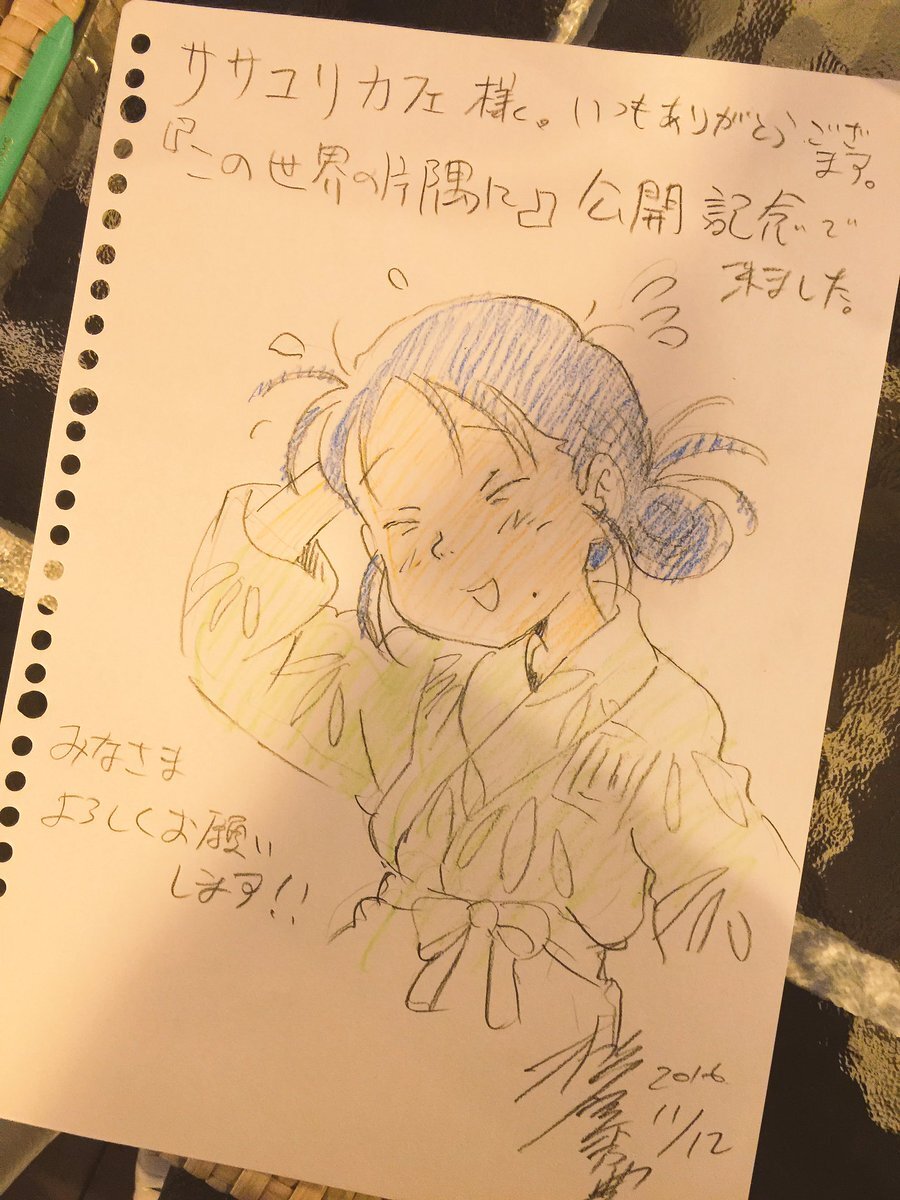 ササユリカフェ様。いつもありがとうござい
ます。
『この世界の片隅に』公開記念で
来ました。
みなさま
よろしくお願い
します!!
2016
11/12